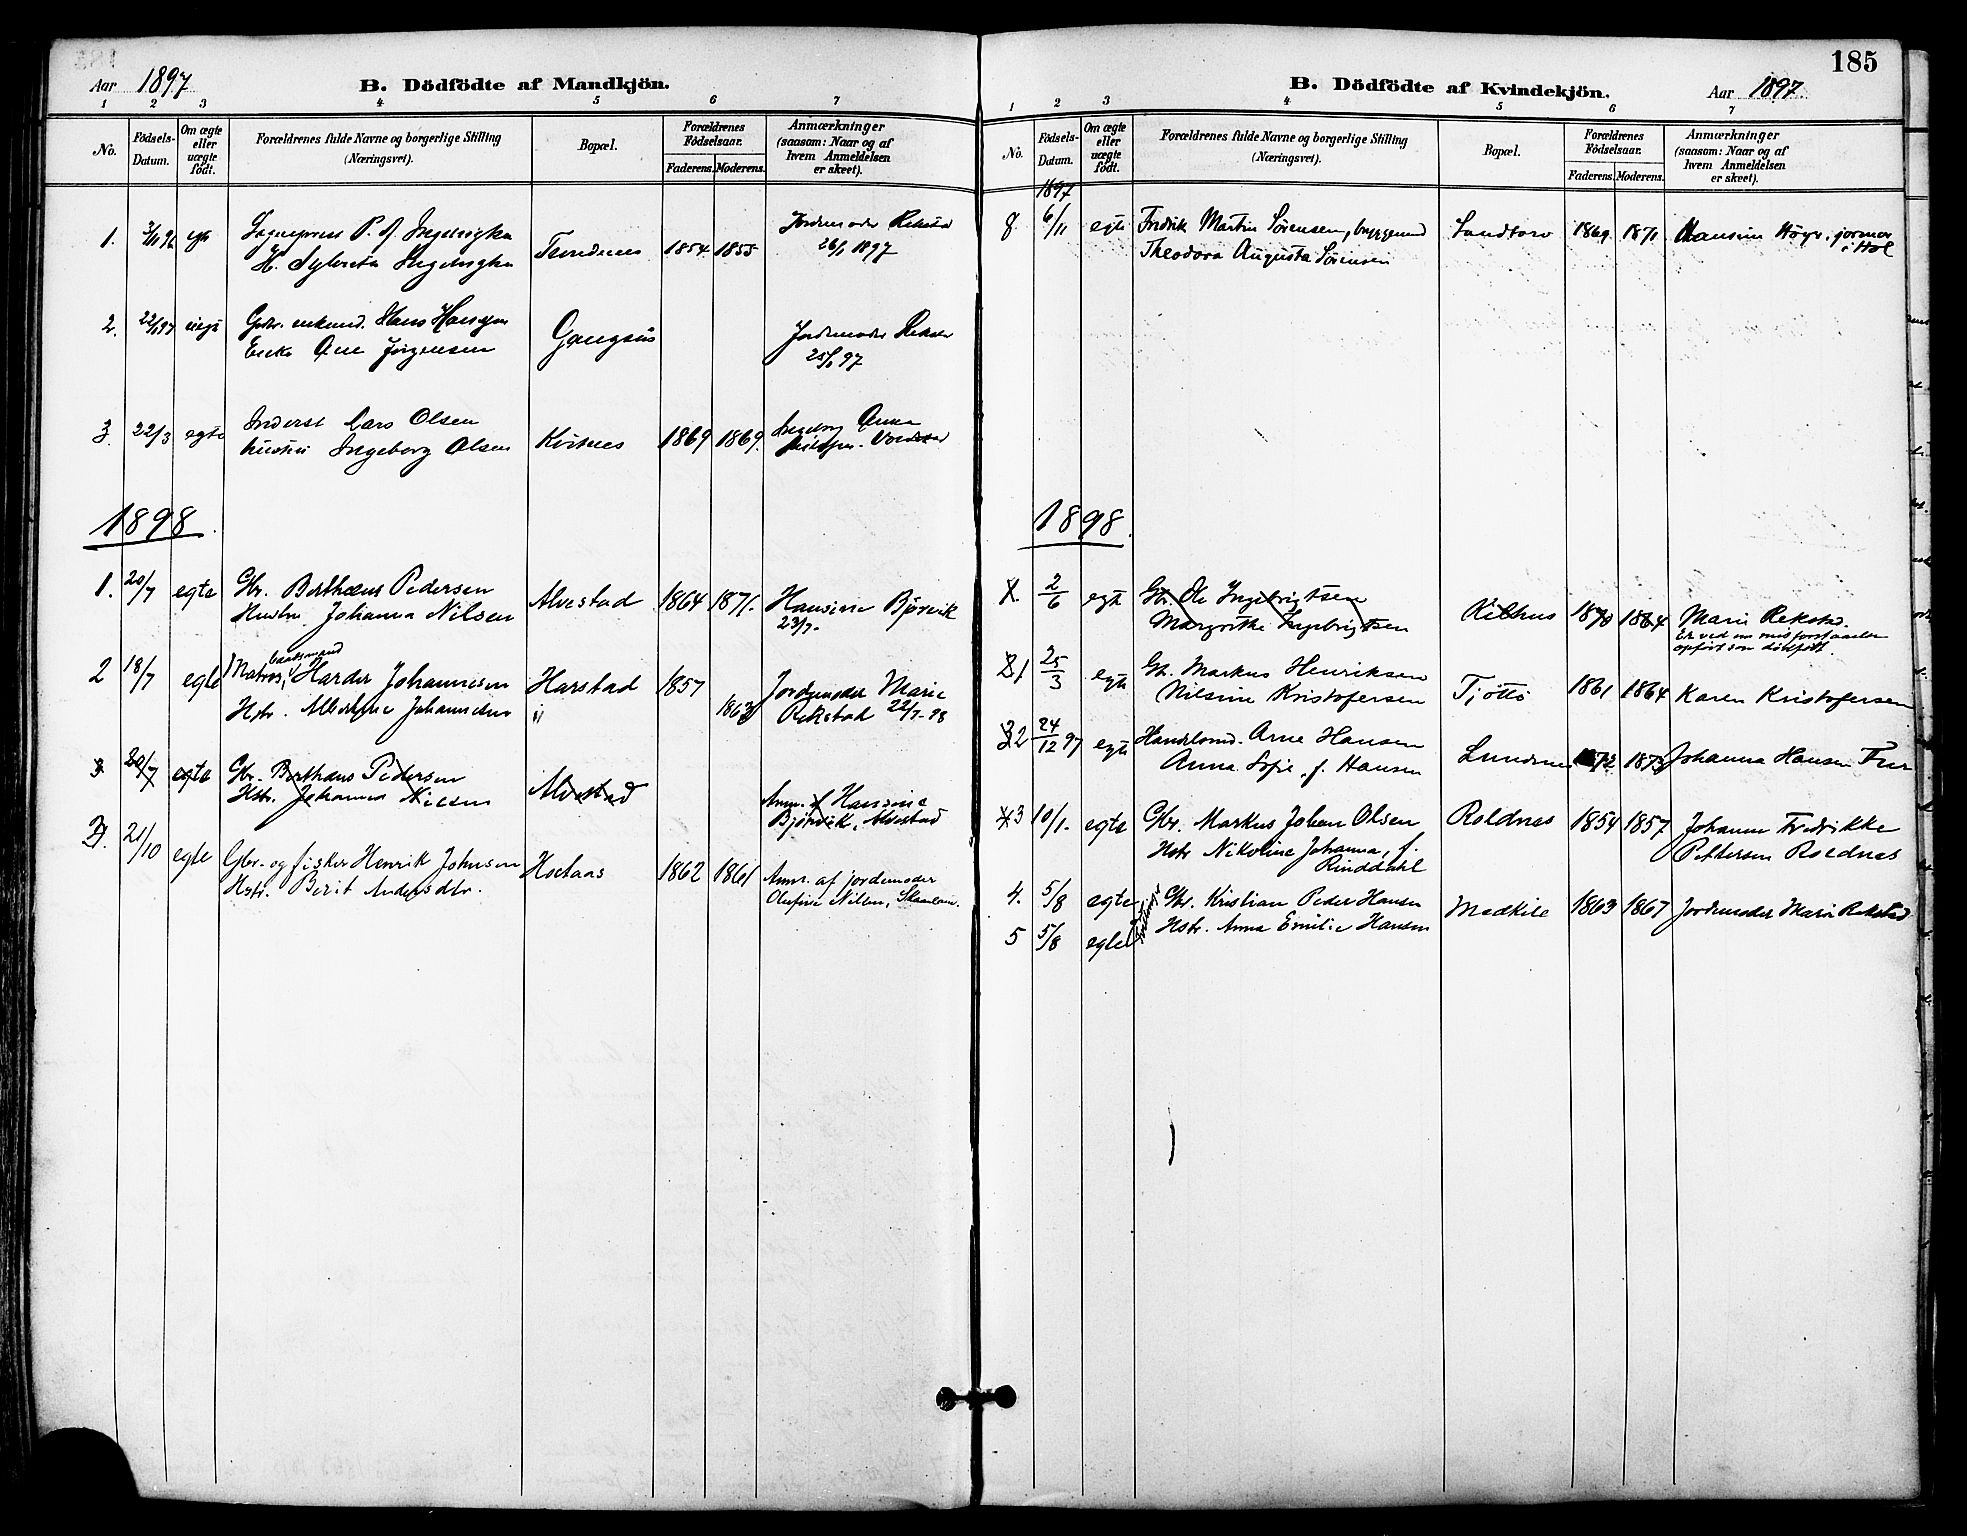 Aar 1897
B. Dödfödte af Mandkjön.
1 2 3 4 5 6 7
No.
Födsels-
Datum.
Om ægte
eller
uægte
födt.
Forældrenes fulde Navne og borgerlige Stilling
(Næringsvei).
Bopæl.
Forældrenes
Födselsaar.
Faderens. Moderens.
Anmærkninger
(saasom: Naar og af
hvem Anmeldelsen
er skeet).
1. egte Sognepræst P. A.
H.
Trondenes 1854 1855
Jordemoder Rekstad
26/1 1897
2. 22/1 97 uegte Hans Hansen
Enke Ane Jørgensen
Gangsaas
Jordemoder Rekstad
25/1 97
3. 22/3 egte Inderst Lars Olsen
hustru Ingeborg Olsen
1869 1869.
Ingeborg Anna
1898.
1. 20/7 egte Gbr. Berthæus Pedersen
Hustru Johanna Nilsen
Alvestad 1864 1871.
Hansine Bjørvik
23/7.
2 18/7 egte Matros, baadsmand Harder Johannesen
Hstr. Albertine Johannesen
Harstad 1857
1863
Jordemoder Marie
Rekstad 22/7-98
3. 20/7 egte Gbr. Berthæus Pedersen
Hstr. Johanna Nilsen
Alvestad
Anm. af Hansine
Bjørvik, Alvestad
3. 21/10 egte Gbr. og fisker Henrik Johnsen
Hstr. Berit Andersdtr.
1862 1861
Anm. af jordemoder
Olufine Nilsen,
185
B. Dödfödte af Kvindekjön.
Aar 1897.
1 2 3 4 5 6 7
No.
Födsels-
Datum.
Om ægte
eller
uægte
födt.
Forældrenes fulde Navne og borgerlige Stilling
(Næringsvei).
Bopæl.
Forældrenes
Födselsaar.
Faderens. Moderens.
Anmærkninger
(saasom: Naar og af
hvem Anmeldelsen
er skeet).
1897
8. 6/11 egte Fredrik Martin Sørensen, byggmand
Theodora Augusta Sørensen
Sandtorv 1869 1871
Hansine Høyer, jormor
i Hol
1898.
1. 2/6 egte Gbr. Ole Ingebrigtsen
Margrethe Ingebrigtsen
Kilhus 1870 1864
Marie Rekstad.
Er ved en misforstaaelse
opført som dødfødt.
21 25/3 egte Gbr. Markus Henriksen
Nilsine Kristofersen
Tjøtta 1861 1864 Karen Kristofersen
32 24/12 97 egte Handelsmd. Arne Hansen
Anna Sofie, f. Hansen
Lundenes 1872 1873 Johanna Hansen
43 10/1. egte Gbr. Markus Johan Olsen
Hstr Nikoline Johanna, f.
Rinddahl
Roldnes 1854 1857
Johanna Fredrikke
Pettersen Roldnes
4. 5/8 egte Gbr. Kristian Peder Hansen
Hstr. Anna Emilie Hansen
Medkile 1863 1867 Jordemoder Marie Rekstad
5 5/8 egte